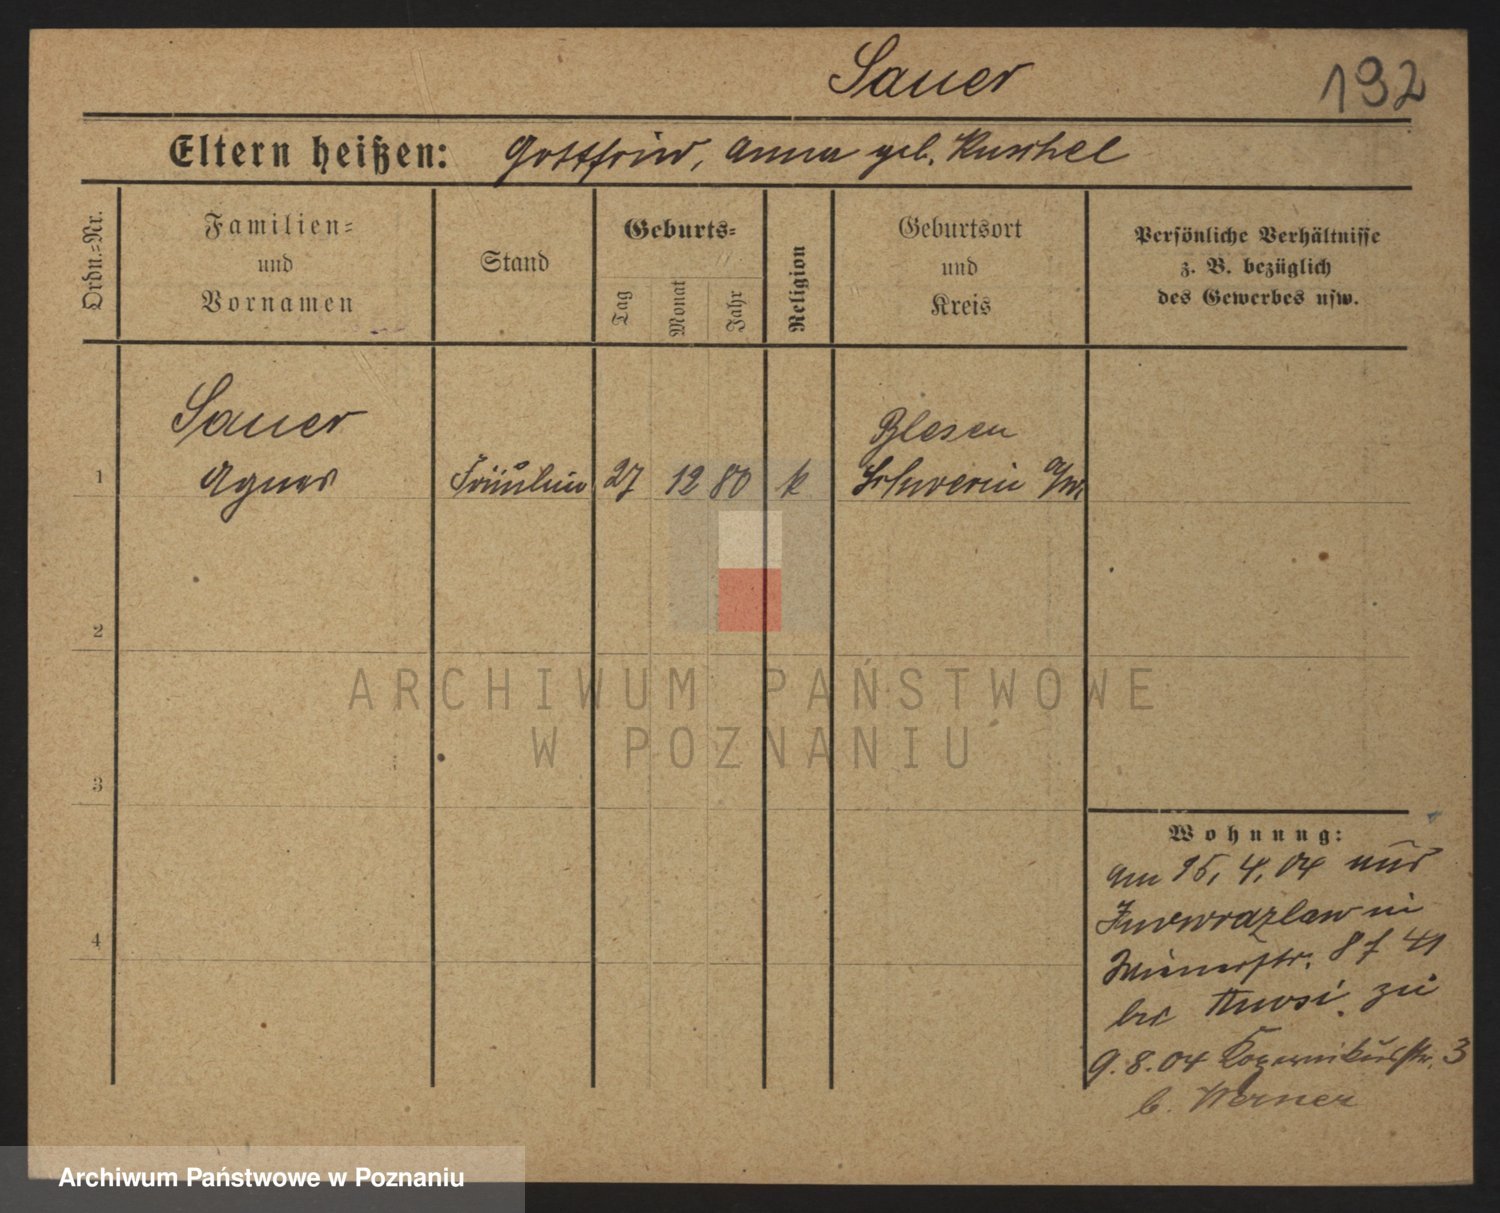 Sauer 192
Eltern heißen: Gottfried, Anna geb. Kuschel
Ordn.-Nr.
Familien-
und
Vornamen
Stand
Geburts-
Tag
Monat
Jahr
Religion
Geburtsort
und
Kreis
Persönliche Verhältnisse
z. B. bezüglich
des Gewerbes usw.
Sauer
Blesen
1 Agnes Fräulein 27 12 80 k Schwerin a/W.
2
ARCHIWUM PAŃSTWOWE
W POZNANIU
3
Wohnung:
am 4.04 aus
Inowrazlaw in
4
zu
9.8.04 Kopernikusstr. 3
b. Werner
Archiwum Państwowe w Poznaniu